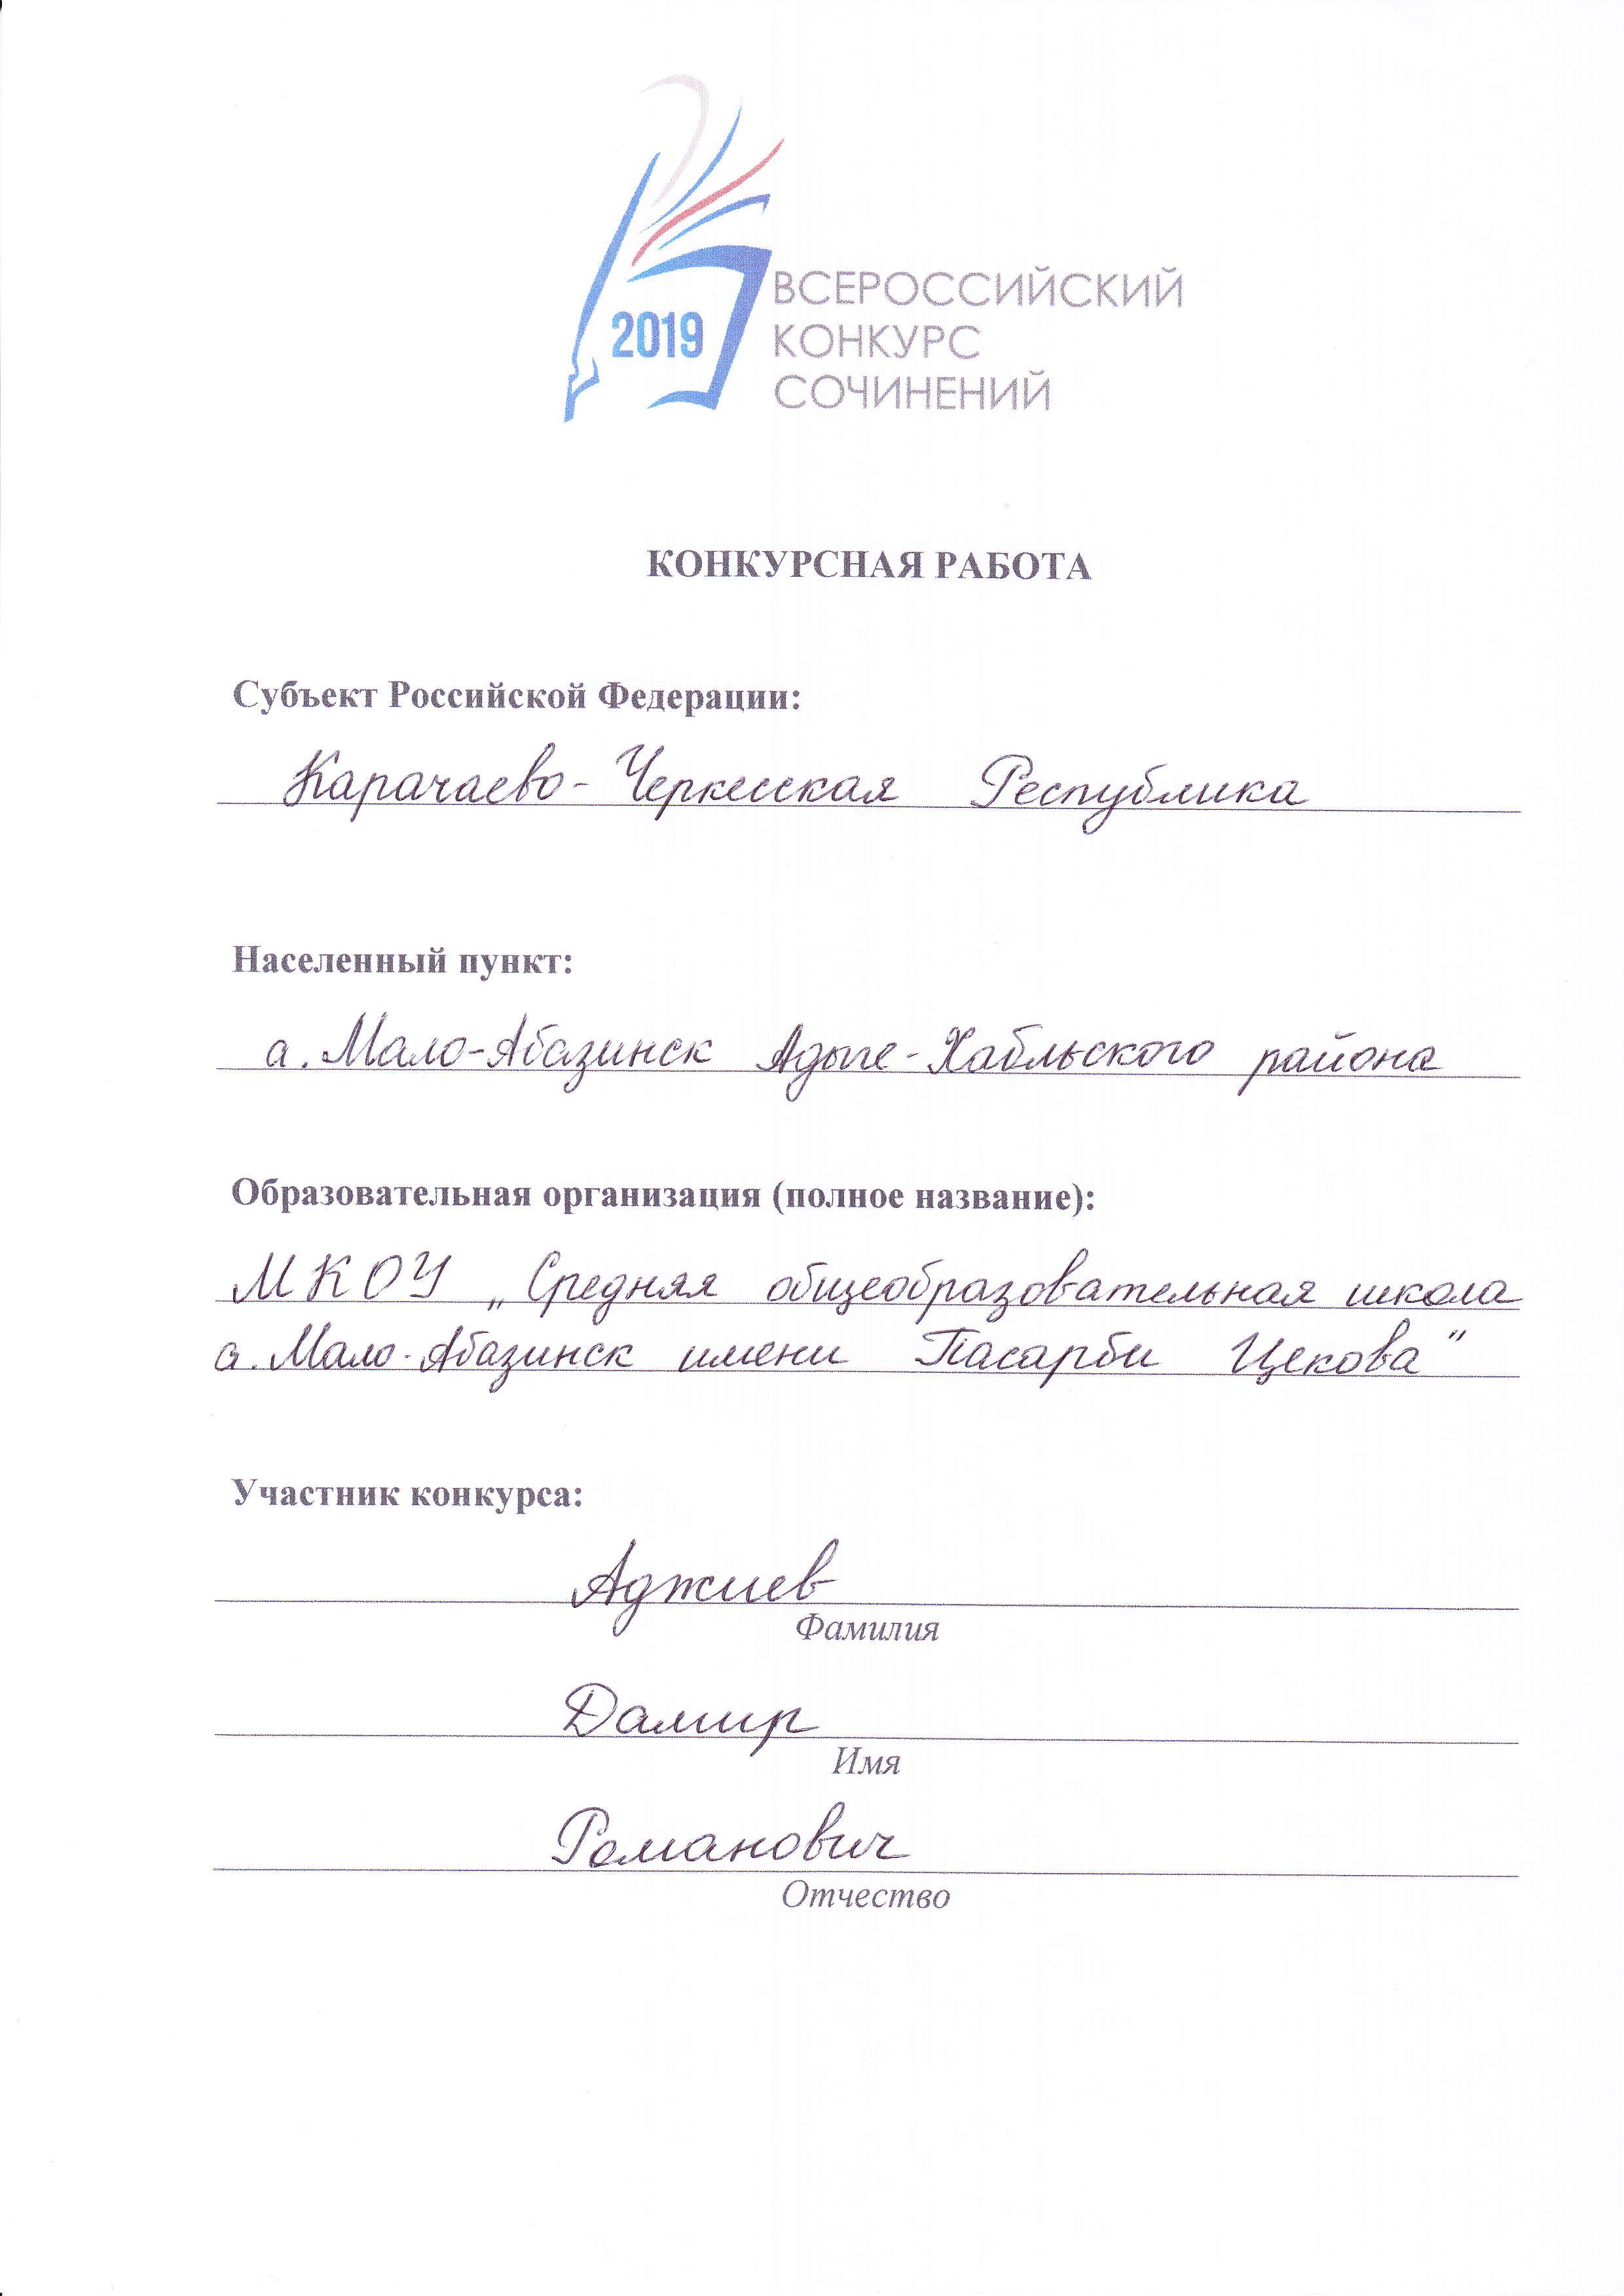 2019
ВСЕРОССИЙСКИЙ
КОНКУРС
СОЧИНЕНИЙ
КОНКУРСНАЯ РАБОТА
Субъект Российской Федерации:
Карачаево-Черкесская Республика
Населенный пункт:
а. Мало-Абазинск Адыге-Хабльского района
Образовательная организация (полное название):
МКОУ „Средняя общеобразовательная школа
а. Мало-Абазинск имени Пасарби Цекова"
Участник конкурса:
Аджиев
Фамилия
Дамир
Имя
Романович
Отчество